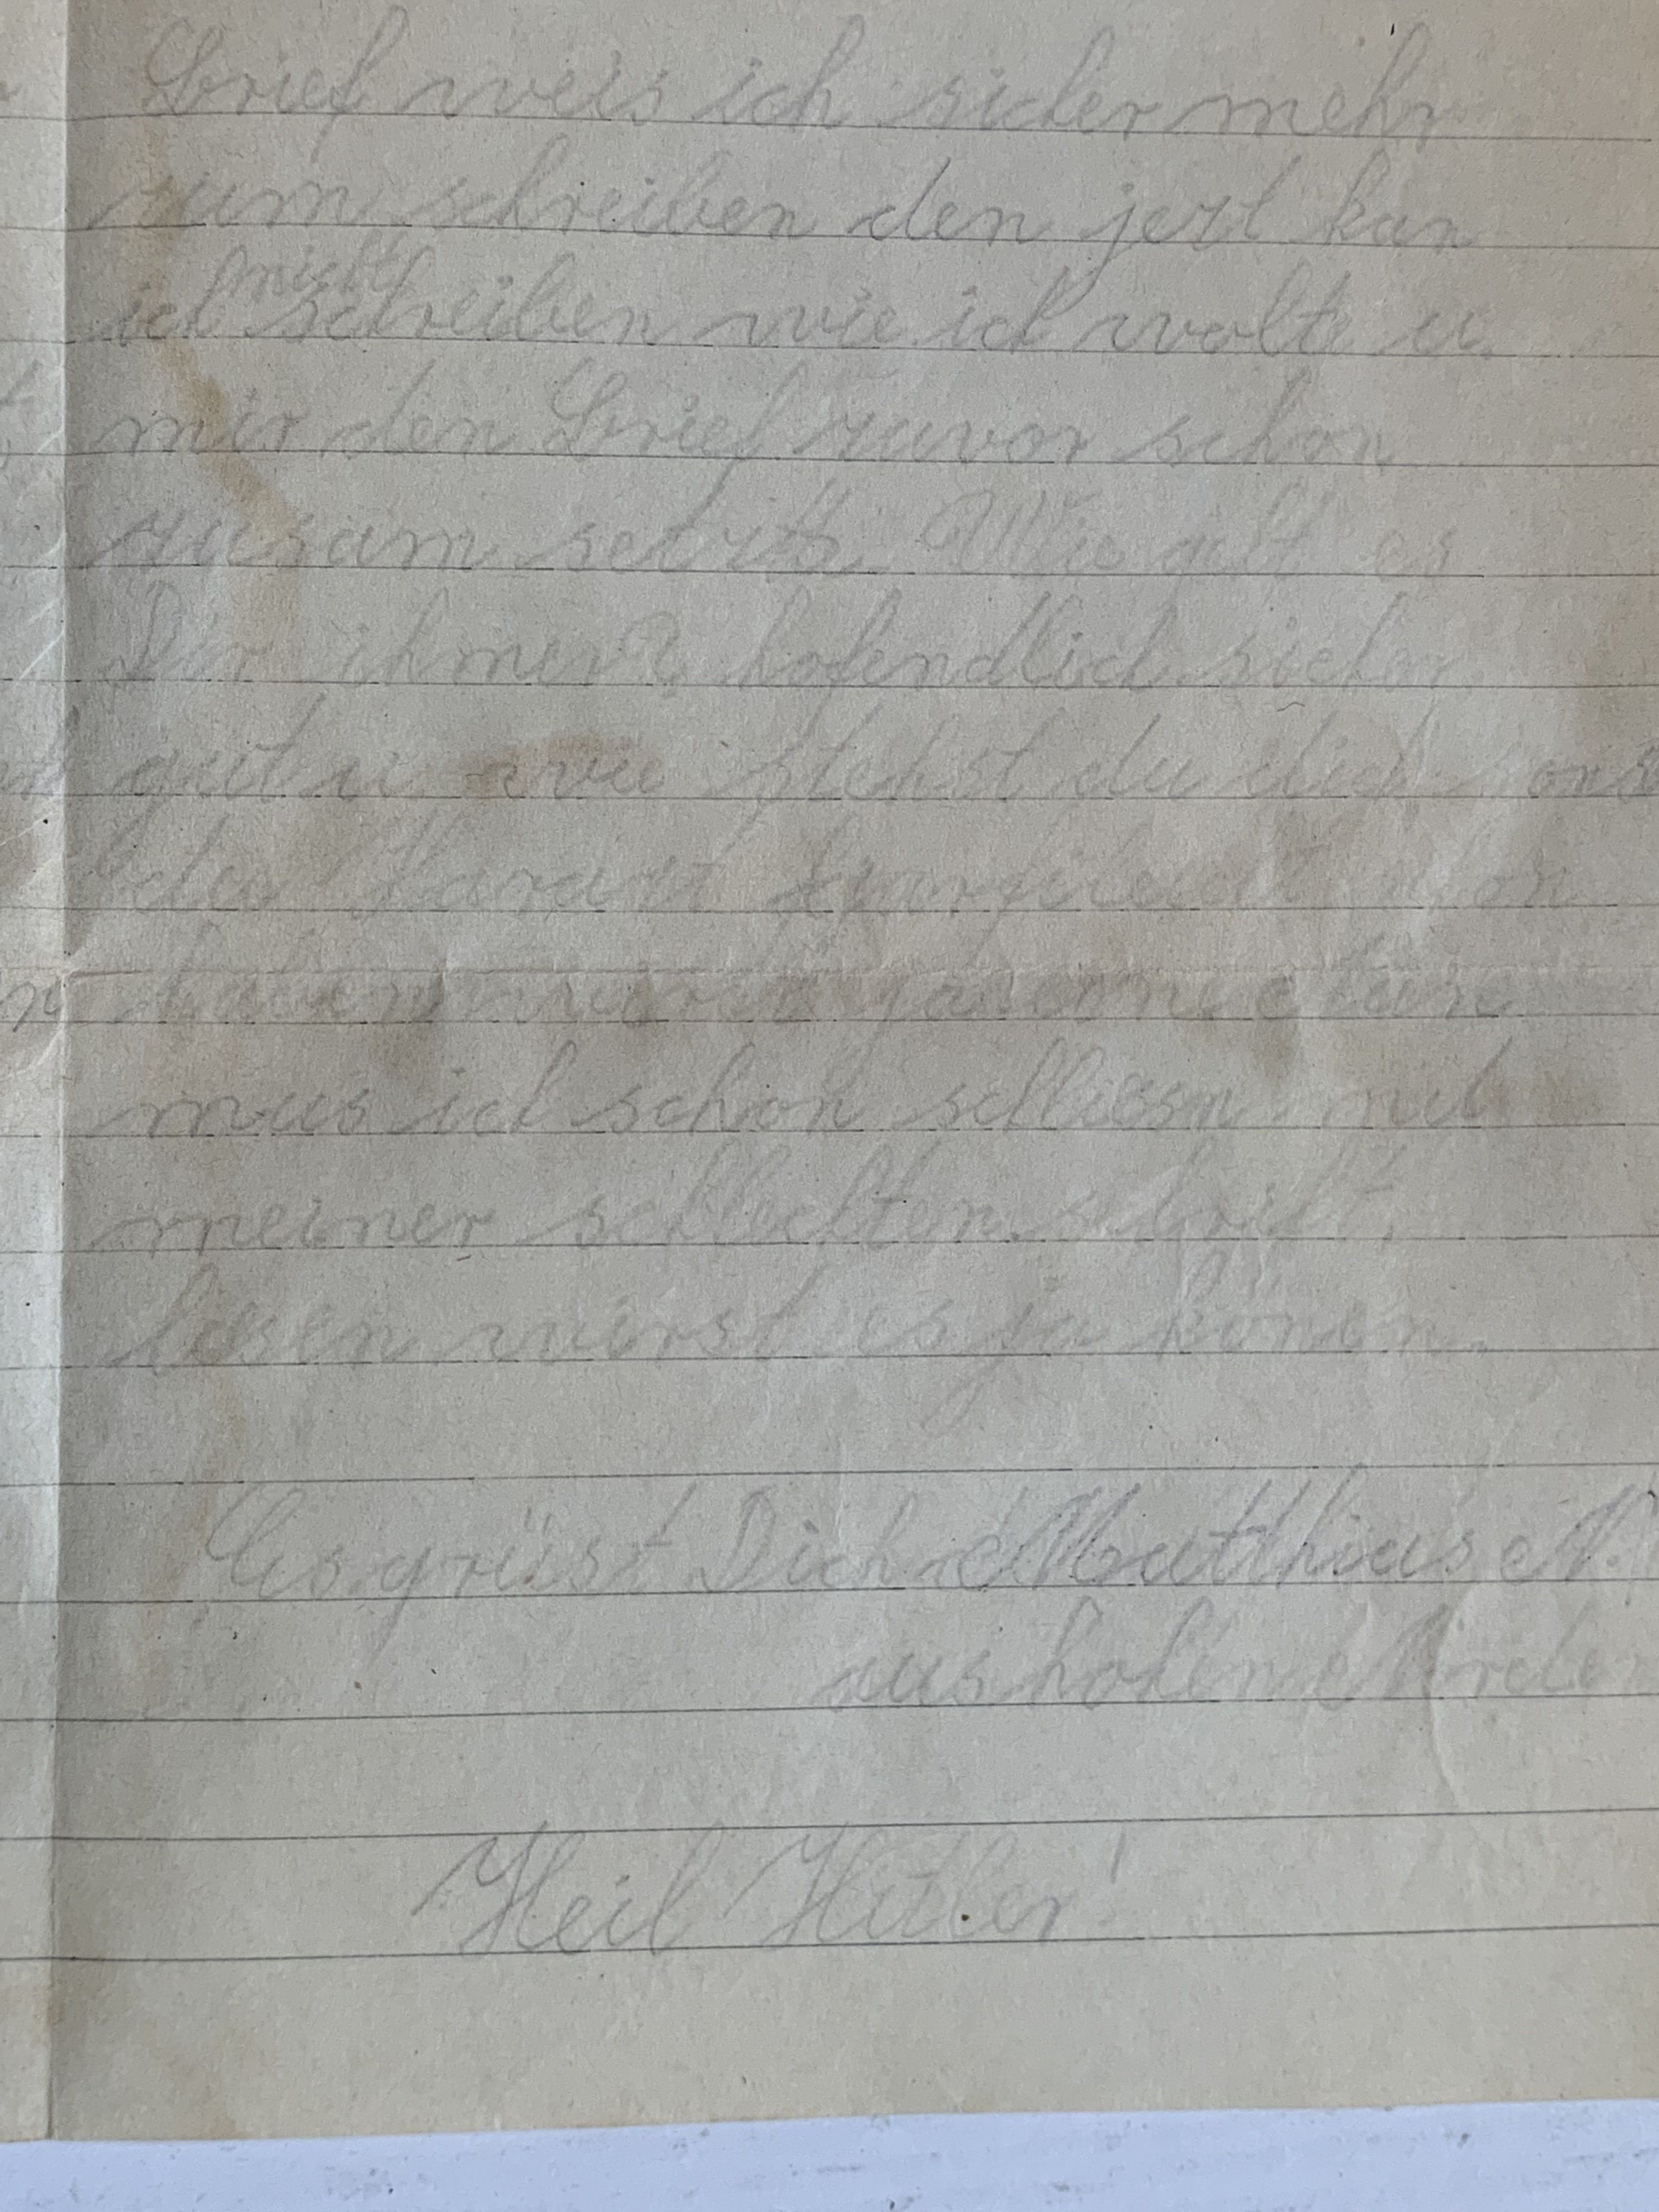 Brief weis ich sicher mehr
zum schreiben den jezt kan
nicht
ich schreiben wie ich wolte u.
mir den Brief zuvor schon
zusam setzte. Wie geht es
Dir ihmer? hofendlich sicher
gut u. wie stehst du dich
der
haben
mus ich schon schliesn mit
meiner schlechten schrift,
lesen wirst es ja könen.
Es grüst Dich Matthias N.
aus hohen Norden
Heil Hitler!